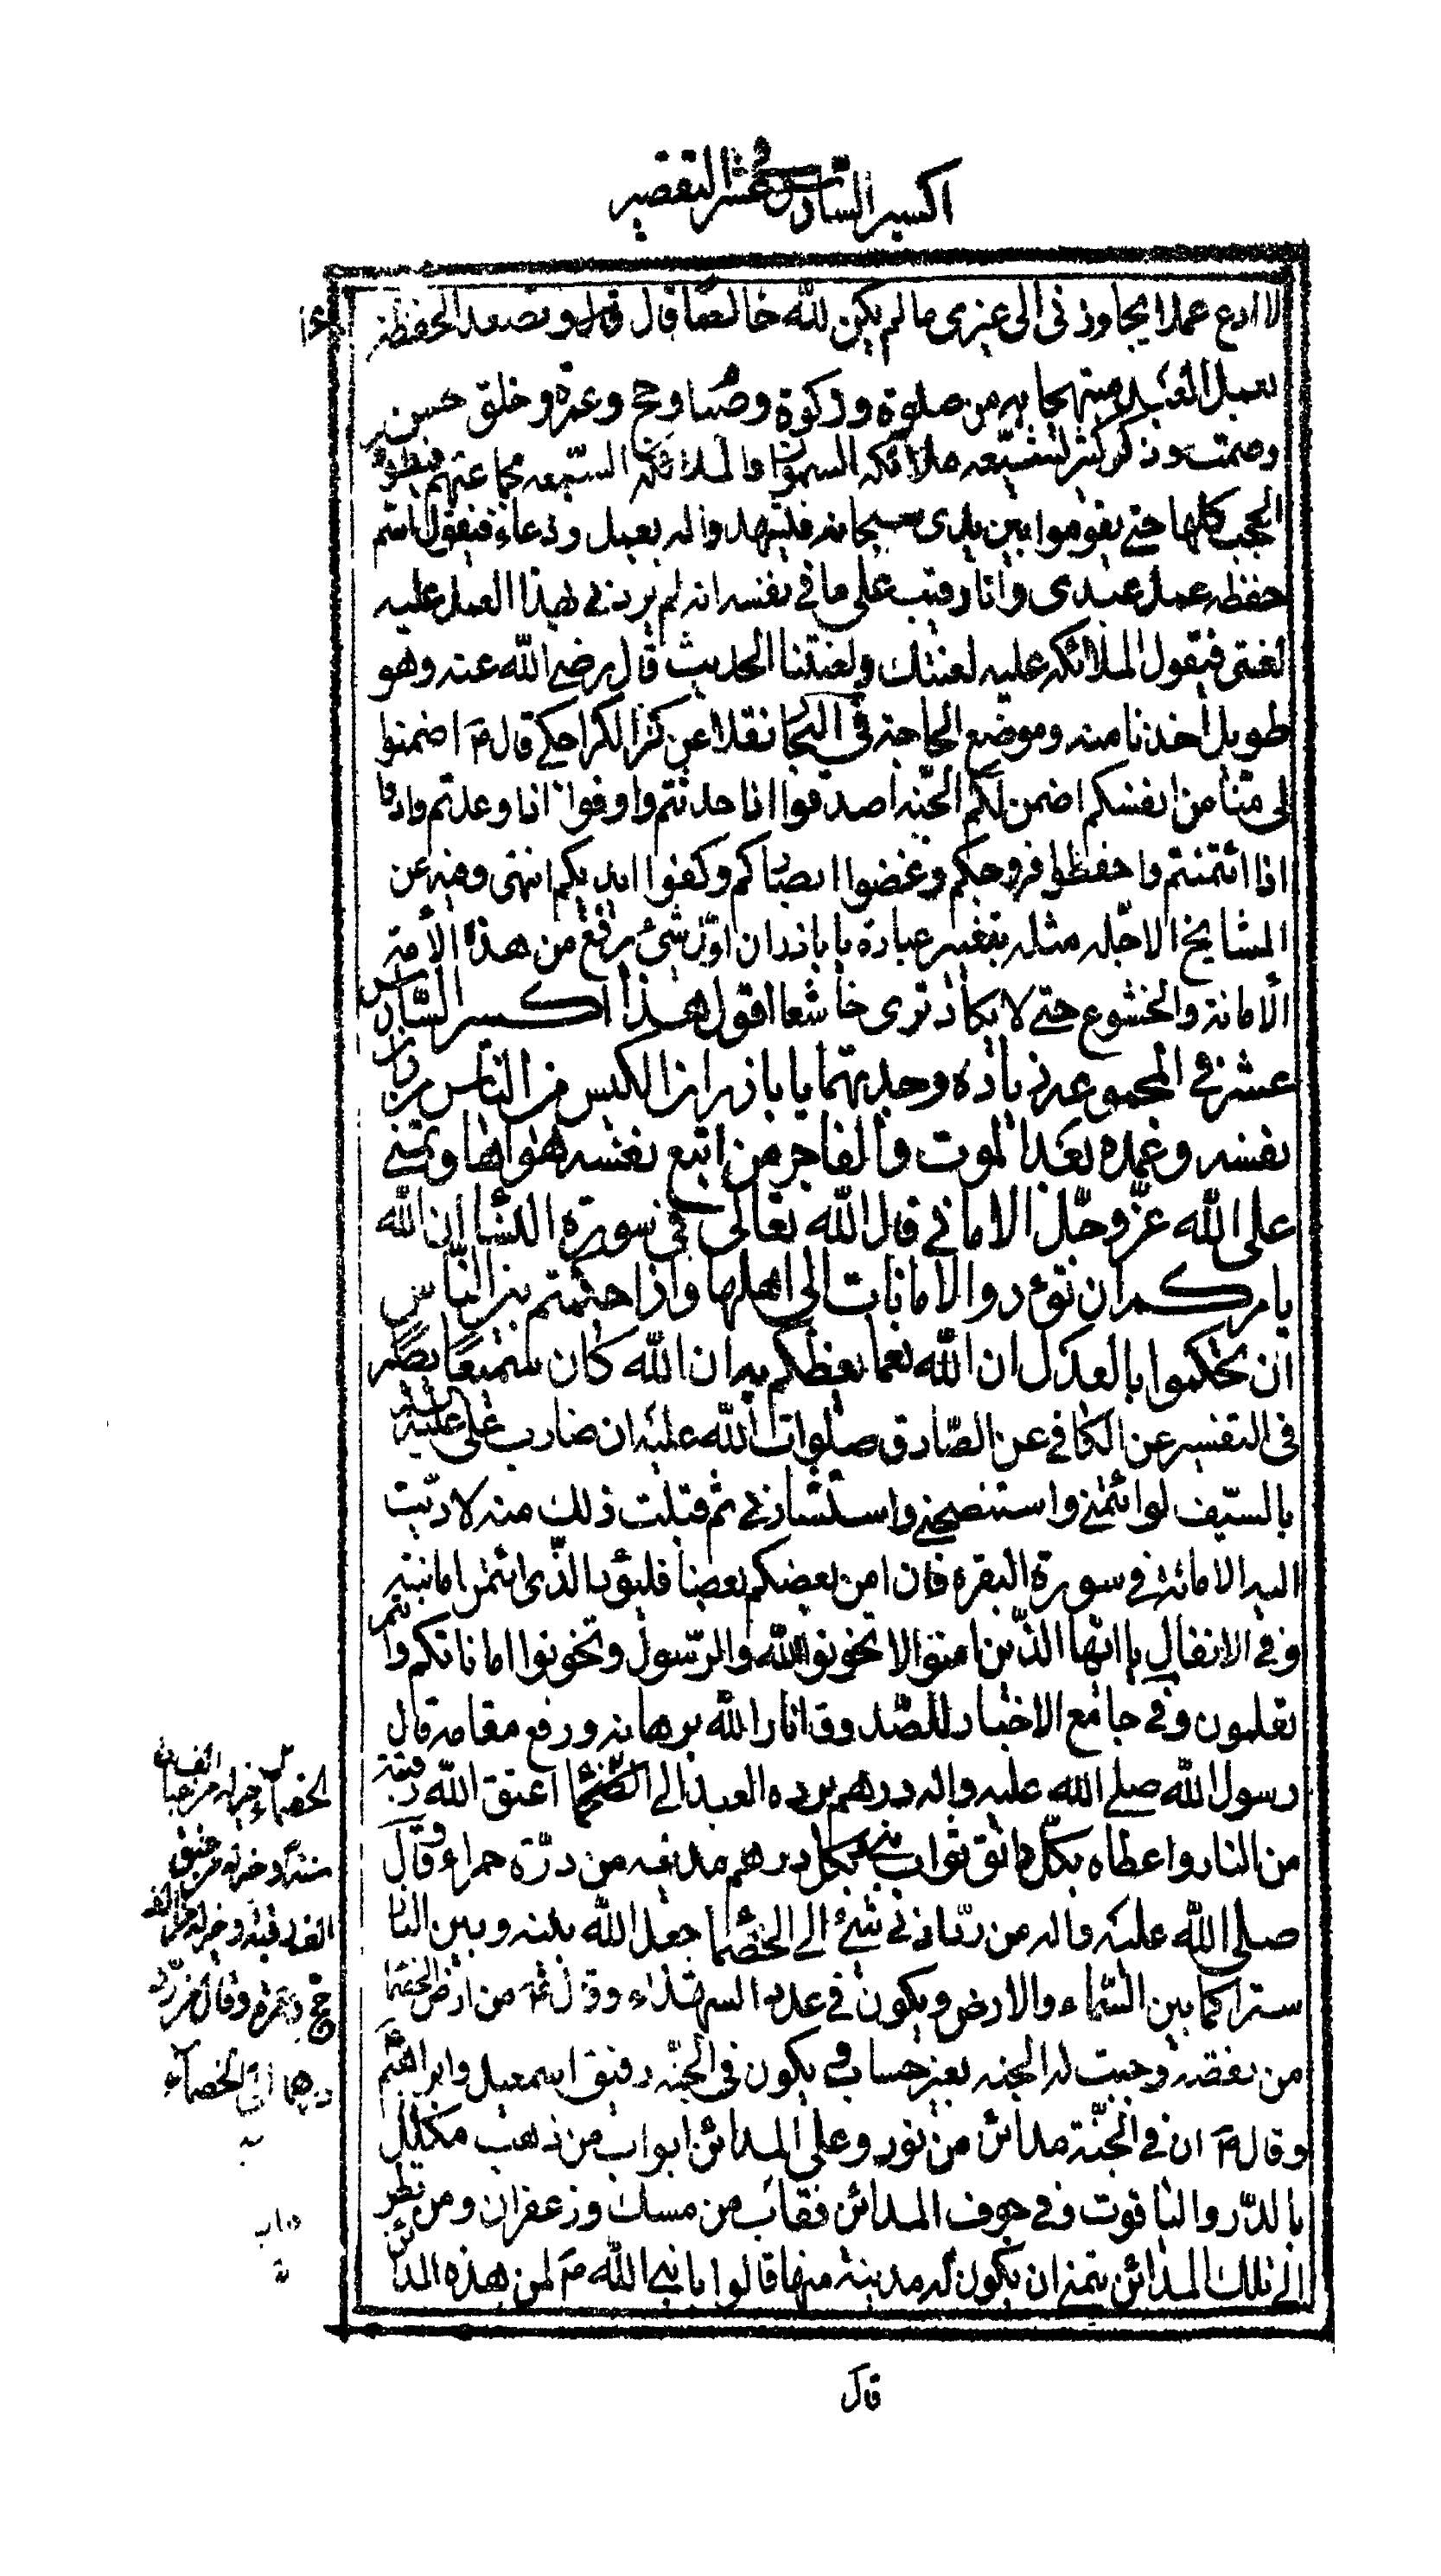 اكسير السادس عشر في التقصير
لا ادع عملا يجاوزني الى غيري ما لم يكن لله خالصا قال قال و تصعد الحفظة
بعمل العبد مبتهجا به من صلوة وزكوة وصيام وحج وعمرة وخلق حسن
وصمت وذكر كثير تشيعه ملائكة السموات والملائكة السبعة بجماعتهم فيطؤن
الحجب كلها حتى يقوموا بين يدى سبحانه فيشهدوا له بعمل ودعاء فيقول انتم
حفظة عمل عبدى وانا رقيب على ما في نفسه انه لم يردني بهذا العمل عليه
لعنتى فيقول الملائكة عليه لعنتك ولعنتنا الحديث قال رضي الله عنه وهو
طويل اخذنا منه وموضع الحاجة في البحار نقلا عن كنز الكراجكي قال ص اضمنوا
لى ستا من انفسكم اضمن لكم الجنة اصدقوا اذا حدثتم واوفوا اذا وعدتم وادوا
اذا ائتمنتم واحفظوا فروجكم وغضوا ابصاركم وكفوا ايديكم انتهى وفيه عن
المشايخ الاجلة مثله بتغيير عبارة يا باذر ان اول شئ يرفع من هذه الامة
الامانة والخشوع حتى لا يكاد ترى خاشعا اقول هذا اكسير السادس
عشر في المجموعة زيادة وجدتهما يا باذر ان الكيس من الناس من دان
نفسه وعمل بعد الموت والفاجر من اتبع نفسه هواها وتمنى
على الله عز وجل الاماني قال الله تعالى في سورة النساء ان الله
يامركم ان تؤدوا الامانات الى اهلها واذا حكمتم بين الناس
ان تحكموا بالعدل ان الله نعما يعظكم به ان الله كان سميعا بصيرا
في التفسير عن الكافي عن الصادق صلوات الله عليه ان ضارب على عليه السلام
بالسيف لو ائتمنني واستنصحني واستشارني ثم قبلت ذلك منه لاديت
اليه الامانة في سورة البقرة فان امن بعضكم بعضا فليؤد الذى ائتمن امانته
وفي الانفال يا ايها الذين امنوا لا تخونوا الله والرسول وتخونوا اماناتكم وانتم
تعلمون وفي جامع الاخبار للصدوق انار الله برهانه ورفع مقامه قال
رسول الله صلى الله عليه واله درهم يرده العبد الى الخصماء اعتق الله رقبته
من النار واعطاه بكل دانق ثواب نبي وبكل درهم مدينة من درة حمراء وقال
صلى الله عليه واله من رد ادنى شئ الى الخصماء جعل الله بينه وبين النار
سترا كما بين السماء والارض ويكون في عداد الشهداء وقال ص من ارضى الخصماء
من نفسه وجبت له الجنة بغير حساب ويكون في الجنة رفيق اسمعيل وابراهيم
وقال ص ان في الجنة مدائن من نور وعلى المدائن ابواب من ذهب مكلل
بالدر والياقوت وفي جوف المدائن قباب من مسك وزعفران ومن نظر
الى تلك المدائن يتمنى ان يكون له مدينة منها قالوا يا نبي الله ص لمن هذه المدائن
الخصماء خير له من عبادة الف
سنة وخير له من عتق
الف رقبة وخير له من الف
حج وعمرة وقال من رد
درهما الى الخصماء
قال